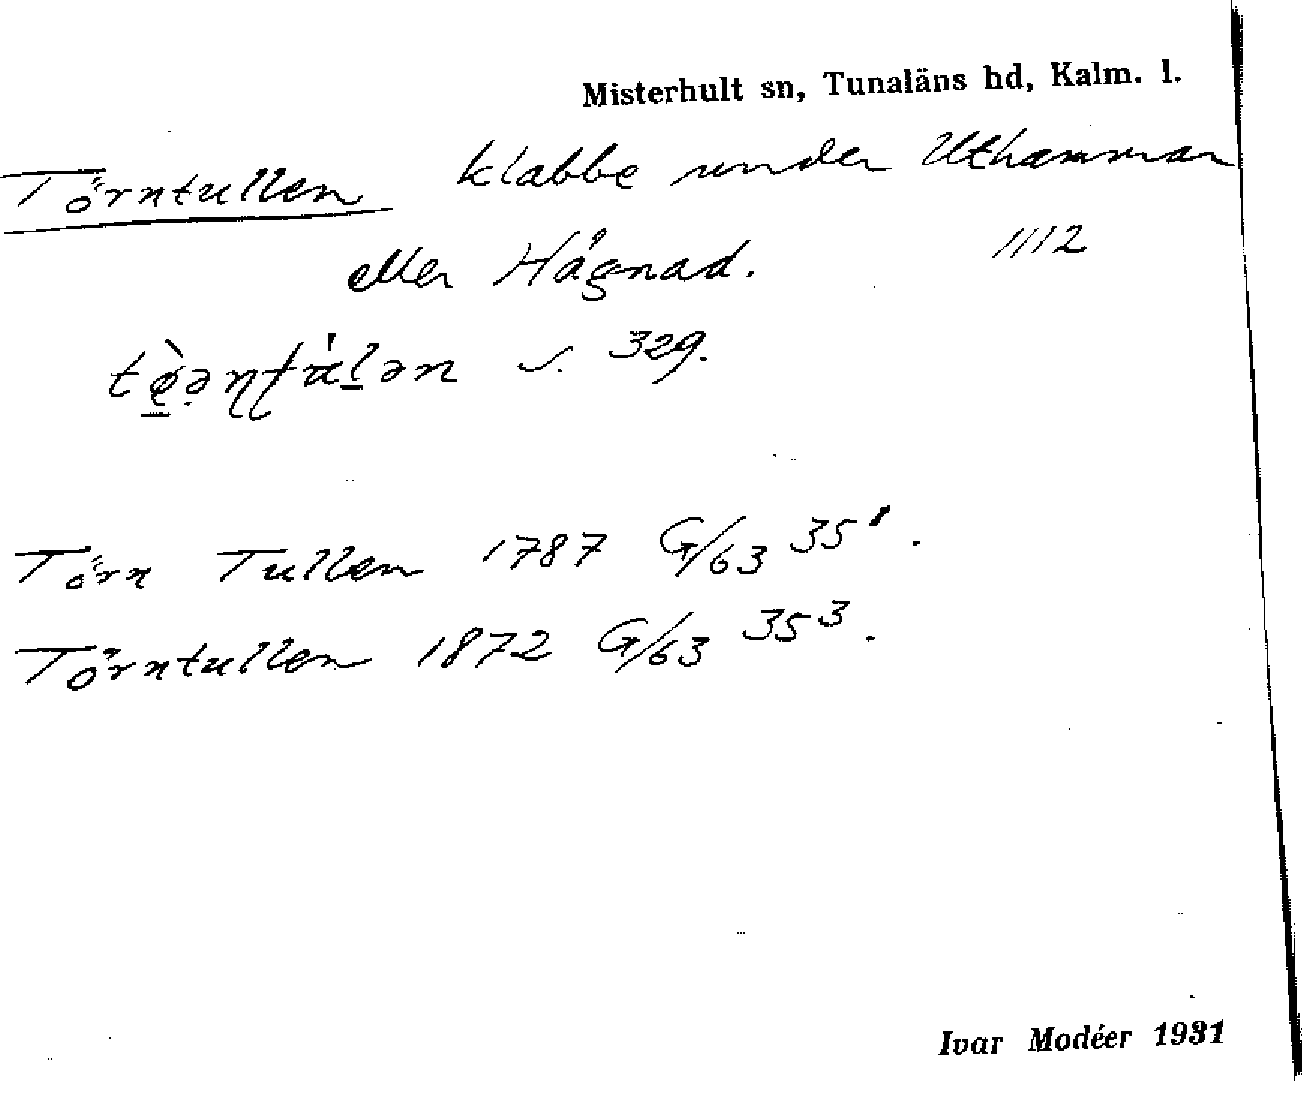 Misterhult sn, Tunaläns hd, Kalm. l.
Törntullen klabbe under Uthamman
eller Hågnad. 1112
s. 329.
Törn Tullen 1787 G/63 35¹.
Törntullen 1872 G/63 35³.
Ivar Modéer 1931